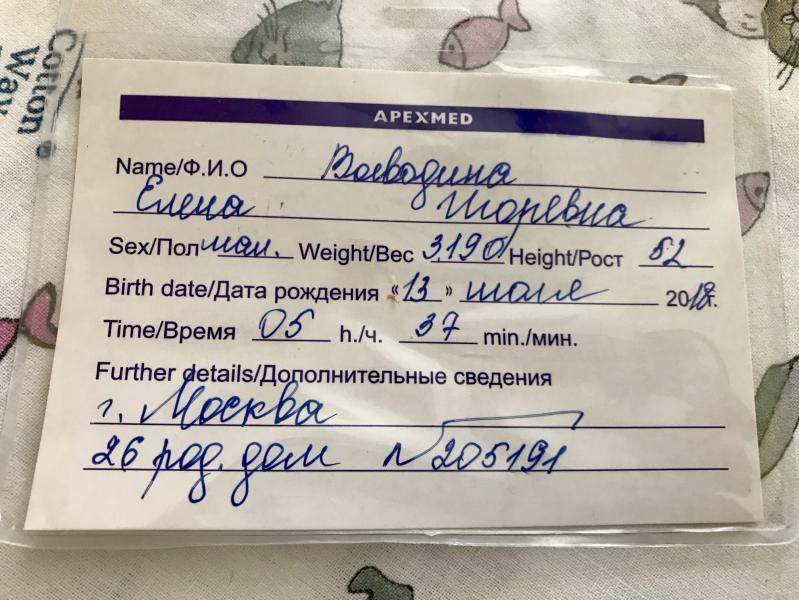 Cotton
Way
APEXMED
Name/Ф.И.О Воеводина
Елена Игоревна
Sex/Пол мал. Weight/Вес 3190 Height/Рост 52
Birth date/Дата рождения «13» июля 2018г.
Time/Время 05 h./ч. 37 min./мин.
Further details/Дополнительные сведения
г. Москва
26 род. дом № 205191